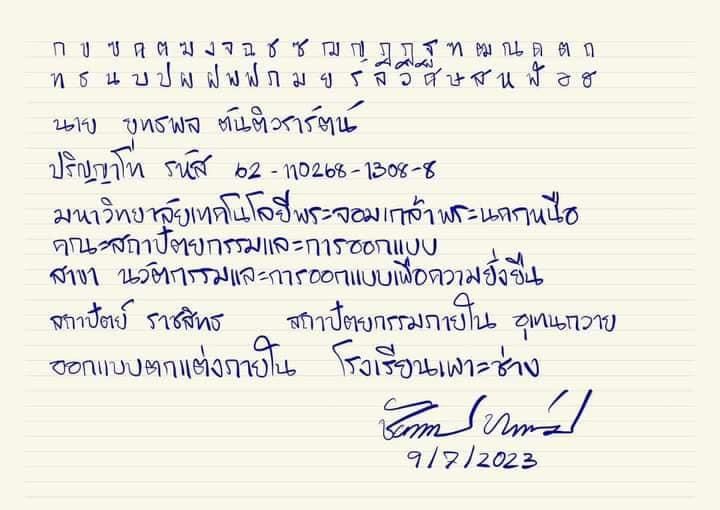 ก ข ฃ ค ฅ ฆ ง จ ฉ ช ซ ฌ ญ ฎ ฏ ฐ ฑ ฒ ณ ด ต ถ
ท ธ น บ ป ผ ฝ พ ฟ ภ ม ย ร ล ว ศ ษ ส ห ฬ อ ฮ
นาย ยุทธพล ตันติวรารัตน์
ปริญญาโท รหัส 62-110268-1308-8
มหาวิทยาลัยเทคโนโลยีพระจอมเกล้าพระนครเหนือ
คณะสถาปัตยกรรมและการออกแบบ
สาขา นวัตกรรมและการออกแบบเพื่อความยั่งยืน
สถาปัตย์ ราชสิทธ สถาปัตยกรรมภายใน อุเทนถวาย
ออกแบบตกแต่งภายใน โรงเรียนเพาะช่าง
9/7/2023